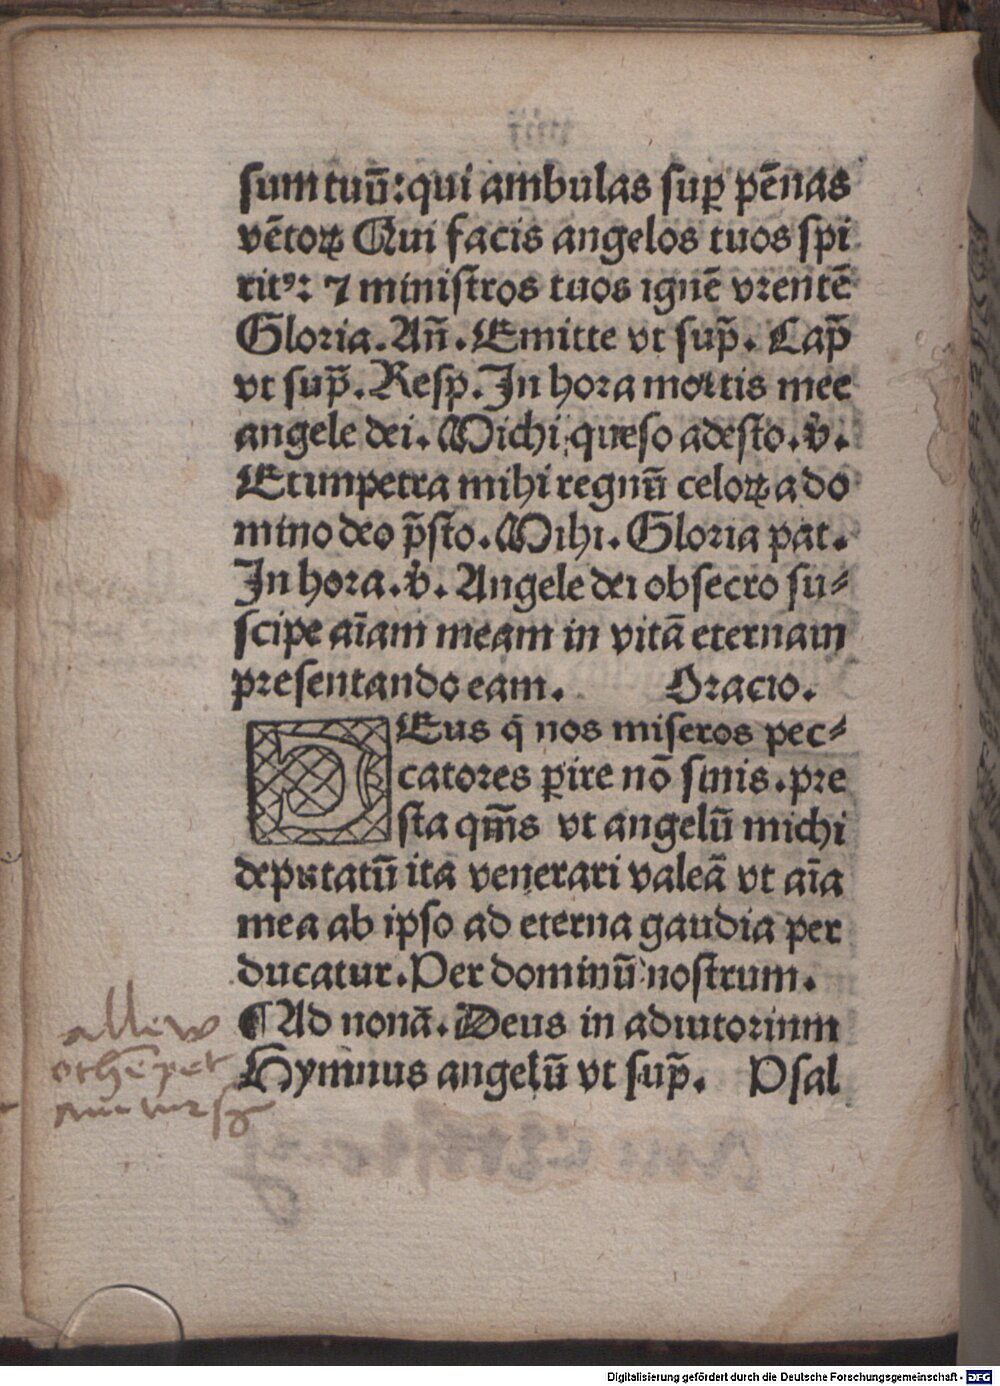 sum tuū: qui ambulas suꝑ pēnas
vētoꝝ Qui facis angelos tuos spi
ritꝰ: ⁊ ministros tuos ignē vrentē
Gloria. Añ. Emitte vt sup̄. Cap̄
vt sup̄. Resp. In hora mortis mee
angele dei. Michi queso adesto. v̉.
Et impetra mihi regnū celoꝝ a do
mino deo p̄sto. Mihi. Gloria pat.
In hora. v̉. Angele dei obsecro su⸗
scipe aīam meam in vitā eternam
presentando eam. Oracio.
DEus q̄ nos miseros pec⸗
catores ꝑire nō sinis. pre
sta qm̄s vt angelū michi
deputatū ita venerari valeā vt aīa
mea ab ipso ad eterna gaudia per
ducatur. Per dominū nostrum.
¶ Ad nonā. Deus in adiutorium
Hymnus angelū vt sup̄. Psal
Digitalisierung gefördert durch die Deutsche Forschungsgemeinschaft - DFG